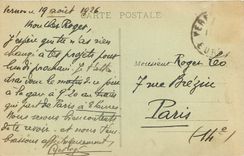 Vernon 19 août 1926
CARTE POSTALE
Mon cher Roger,
J'espère que tu n'as rien
changé à tes projets pour
lundi prochain. Je
drai donc le matin
à la gare à 9h20 au train
qui part de Paris à 8 heures
Nous serons bien contents
de te revoir et nous t'em-
brassons affectueusement
VERN
EURE
Monsieur Roger
7 rue Brézin
Paris
(14e)